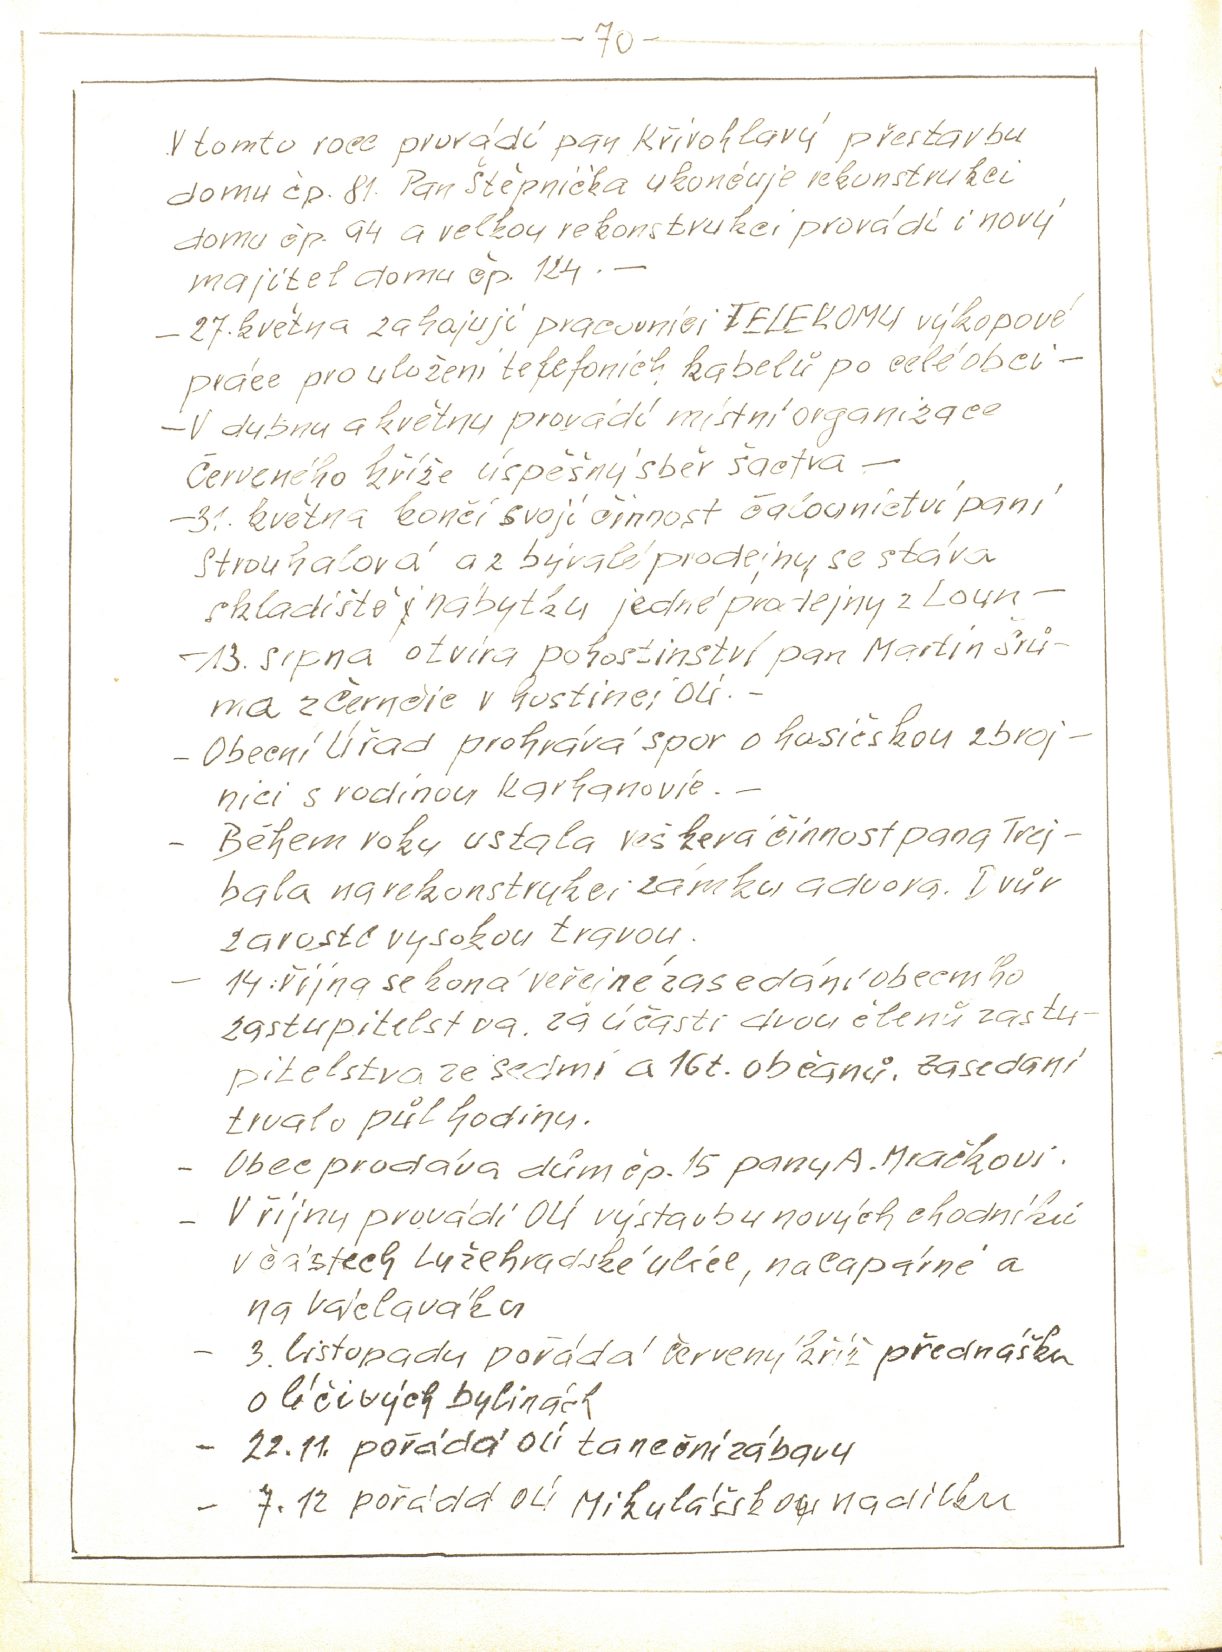 - 70 -
V tomto roce provádí pan Křivohlavý přestavbu
domu čp. 81. Pan Štěpnička ukončuje rekonstrukci
domu čp. 94 a velkou rekonstrukci provádí i nový
majitel domu čp. 124. -
- 27. května zahajují pracovníci TELEKOMU výkopové
práce pro uložení telefoních kabelů po celé obci -
- V dubnu a květnu provádí místní organizace
Červeného kříže úspěšný sběr šactva -
- 31. května končí svojí činnost čalounictví paní
Strouhalová a z bývalé prodejny se stáva
skladiště nábytku jedné prodejny z Loun -
- 13. srpna otvírá pohostinství pan Martin Šrů-
ma z Černčic v hostinci OÚ. -
- Obecní Úřad prohrává spor o hasičskou zbroj-
nici s rodinou Karhanovic. -
- Během roku ustala veškerá činnost pana Trej-
bala na rekonstrukci zámku a dvora. Dvůr
zarostl vysokou travou.
- 14. října se koná veřejné zasedání obecního
zastupitelstva. za účasti dvou členů zastu-
pitelstva ze sedmi a 16t. občanů. Zasedání
trvalo půl hodiny.
- Obec prodává dům čp. 15 panu A. Mračkovi.
- V říjnu provádí OÚ výstavbu nových chodníků
v částech Lužehradské ulice, na capárně a
na Václaváku
- 3. listopadu pořádá Červený kříž přednášku
o léčivých bylinách
- 22. 11. pořádá OÚ taneční zábavu
- 7. 12 pořádá OÚ Mikulášskou nadílku